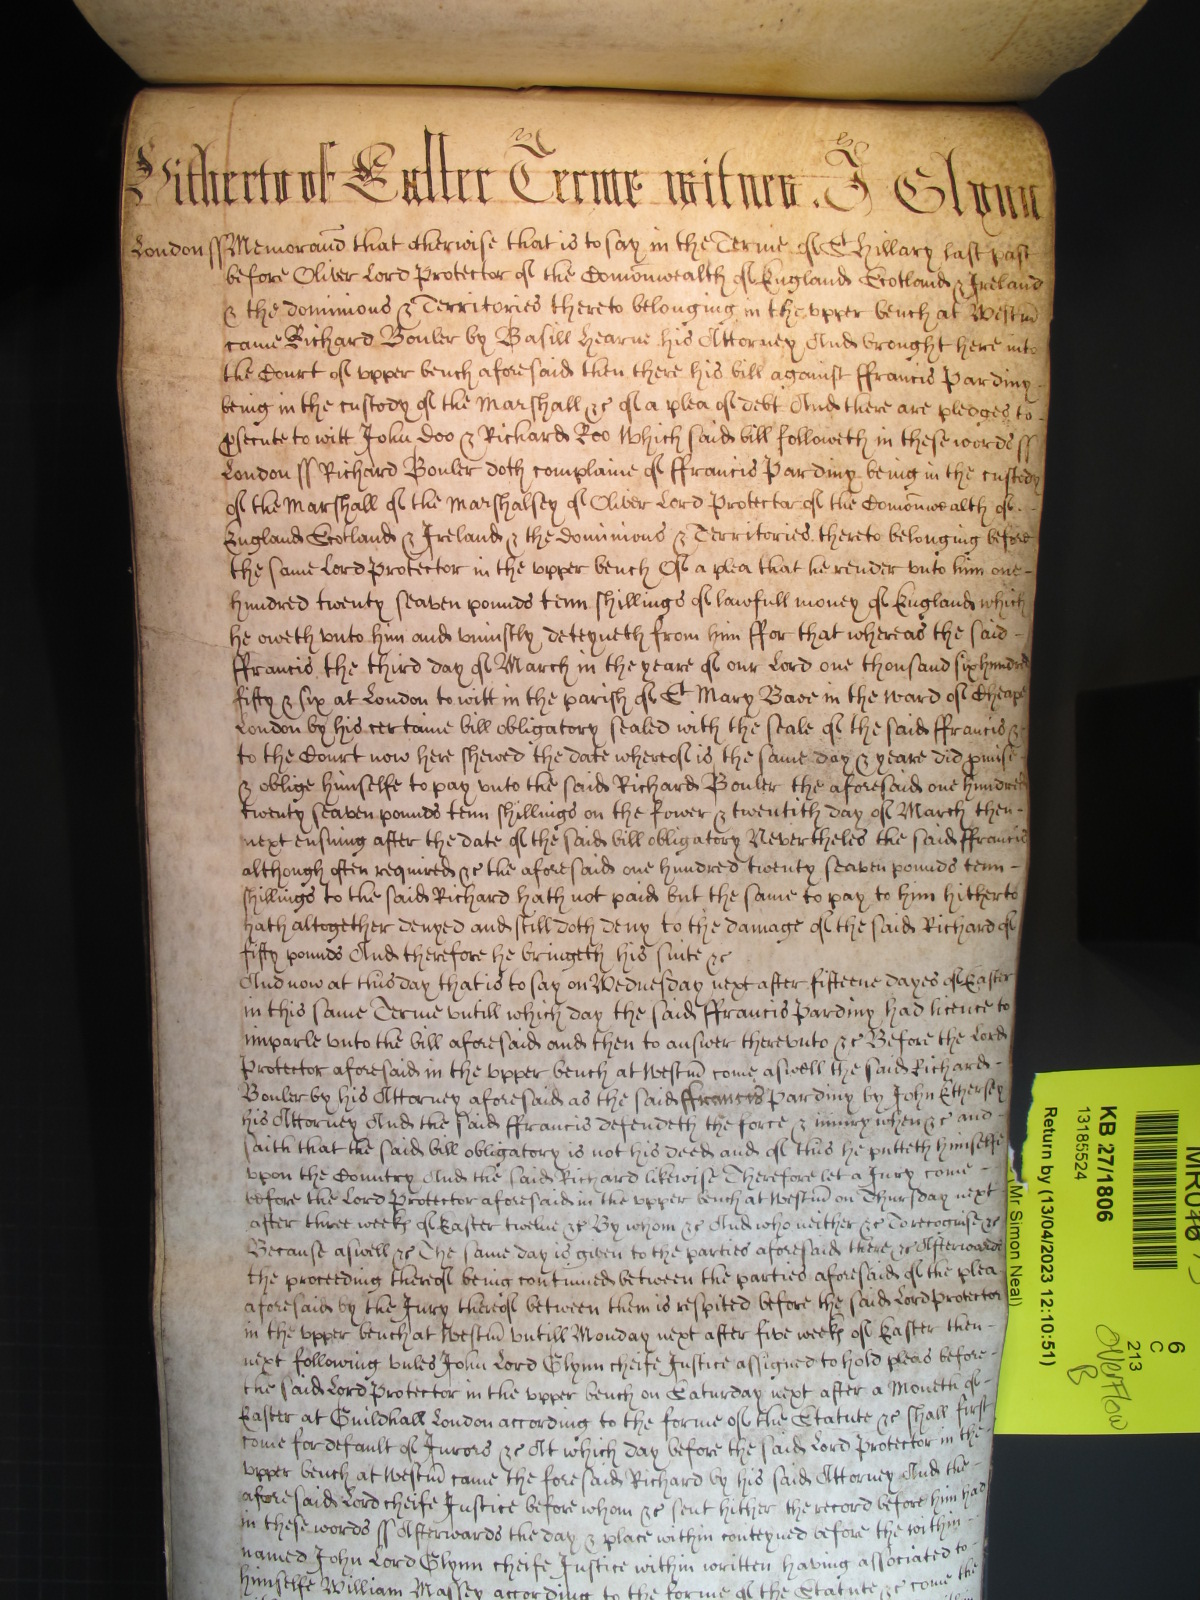 Hitherto of Easter Terme witnes J Glynn
London ss Memorand that otherwise that is to say in the Terme of St Hillary last past
before Oliver Lord Protector of the Comonwealth of England Scotland & Ireland
& the dominions & Territories thereto belonging in the vpper bench at Westm
came Richard Bouler by Basill Hearne his Attorney And brought here into
the Court of vpper bench aforesaid then there his bill against ffrancis Pardiny
being in the custody of the Marshall &c of a plea of debt And there are pledges to
psecute to witt John Doo & Richard Roo Which said bill followeth in these words ss
London ss Richard Bouler doth complaine of ffrancis Pardiny being in the custody
of the Marshall of the Marshalsey of Oliver Lord Protector of the Comonwealth of
England Scotland & Ireland & the dominions & Territories thereto belonging before
the same Lord Protector in the vpper bench Of a plea that he render vnto him one
hundred twenty seaven pounds tenn shillings of lawfull money of England which
he oweth vnto him and vniustly deteyneth from him ffor that whereas the said
ffrancis the third day of March in the yeare of our Lord one thousand six hundred
fifty & six at London to witt in the parish of St Mary Bowe in the ward of Cheape
London by his certaine bill obligatory sealed with the seale of the said ffrancis &c
to the Court now here shewed the date whereof is the same day & yeare did pmise
& oblige himselfe to pay vnto the said Richard Bouler the aforesaid one hundred
twenty seaven pounds tenn shillings on the fower & twentith day of March then
next ensuing after the date of the said bill obligatory Nevertheles the said ffrancis
although often required &c the aforesaid one hundred twenty seaven pounds tenn
shillings to the said Richard hath not paid but the same to pay to him hitherto
hath altogether denyed and still doth deny to the damage of the said Richard of
fifty pounds And therefore he bringeth his suite &c
And now at this day that is to say on Wednesday next after fifteene dayes of Easter
in this same Terme vntill which day the said ffrancis Pardiny had licence to
imparle vnto the bill aforesaid and then to answer therevnto &c Before the Lord
Protector aforesaid in the vpper bench at Westm come aswell the said Richard
Bouler by his Attorney aforesaid as the said ffrancis Pardiny by John Ethersey
his Attorney And the said ffrancis defendeth the force & iniury when &c and
saith that the said bill obligatory is not his deed and of this he putteth himselfe
vpon the Country And the said Richard likewise Therefore let a Jury come
before the Lord Protector aforesaid in the vpper bench at Westm on Thursday next
after three weeks of Easter twelve &c By whom &c And who neither &c To recognise &c
Because aswell &c The same day is given to the parties aforesaid there &c Afterwards
the proceeding thereof being continued betweene the parties aforesaid of the plea
aforesaid by the Jury thereof between them is respited before the said Lord Protector
in the vpper bench at Westm vntill Monday next after five weeks of Easter then
next following vnles John Lord Glynn cheife Justice assigned to hold pleas before
the said Lord Protector in the vpper bench on Saturday next after a Moneth of
Easter at Guildhall London according to the forme of the Statute &c shall first
come for default of Jurors &c At which day before the said Lord Protector in the
vpper bench at Westm came the foresaid Richard by his said Attorney And the
aforesaid Lord cheife Justice before whom &c sent hither the record before him had
in these words ss Afterwards the day & place within conteyned before the within
named John Lord Glynn cheife Justice within written having associated to
himselfe William Massey according to the forme of the Statute &c come the
KB 27/1806
13185524
Return by (13/04/2023 12:10:51)
(Mr Simon Neal)
6
C
213
Overflow
B